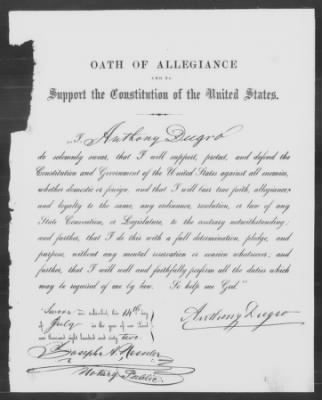 OATH OF ALLEGIANCE
AND TO
Support the Constitution of the United States.
I, Anthony Dugro
do solemnly swear, that I will support, protect, and defend the
Constitution and Government of the United States against all enemies,
whether domestic or foreign, and that I will bear true faith, allegiance,
and loyalty to the same, any ordinance, resolution, or law of any
State Convention, or Legislature, to the contrary notwithstanding;
and further, that I do this with a full determination, pledge, and
purpose, without any mental reservation or evasion whatsoever; and
further, that I will well and faithfully perform all the duties which
may be required of me by law. So help me God."
Sworn and subscribed, this 14th day
of July in the year of our Lord
one thousand eight hundred and sixty two
Anthony Dugro
Joseph A.
Notary Public